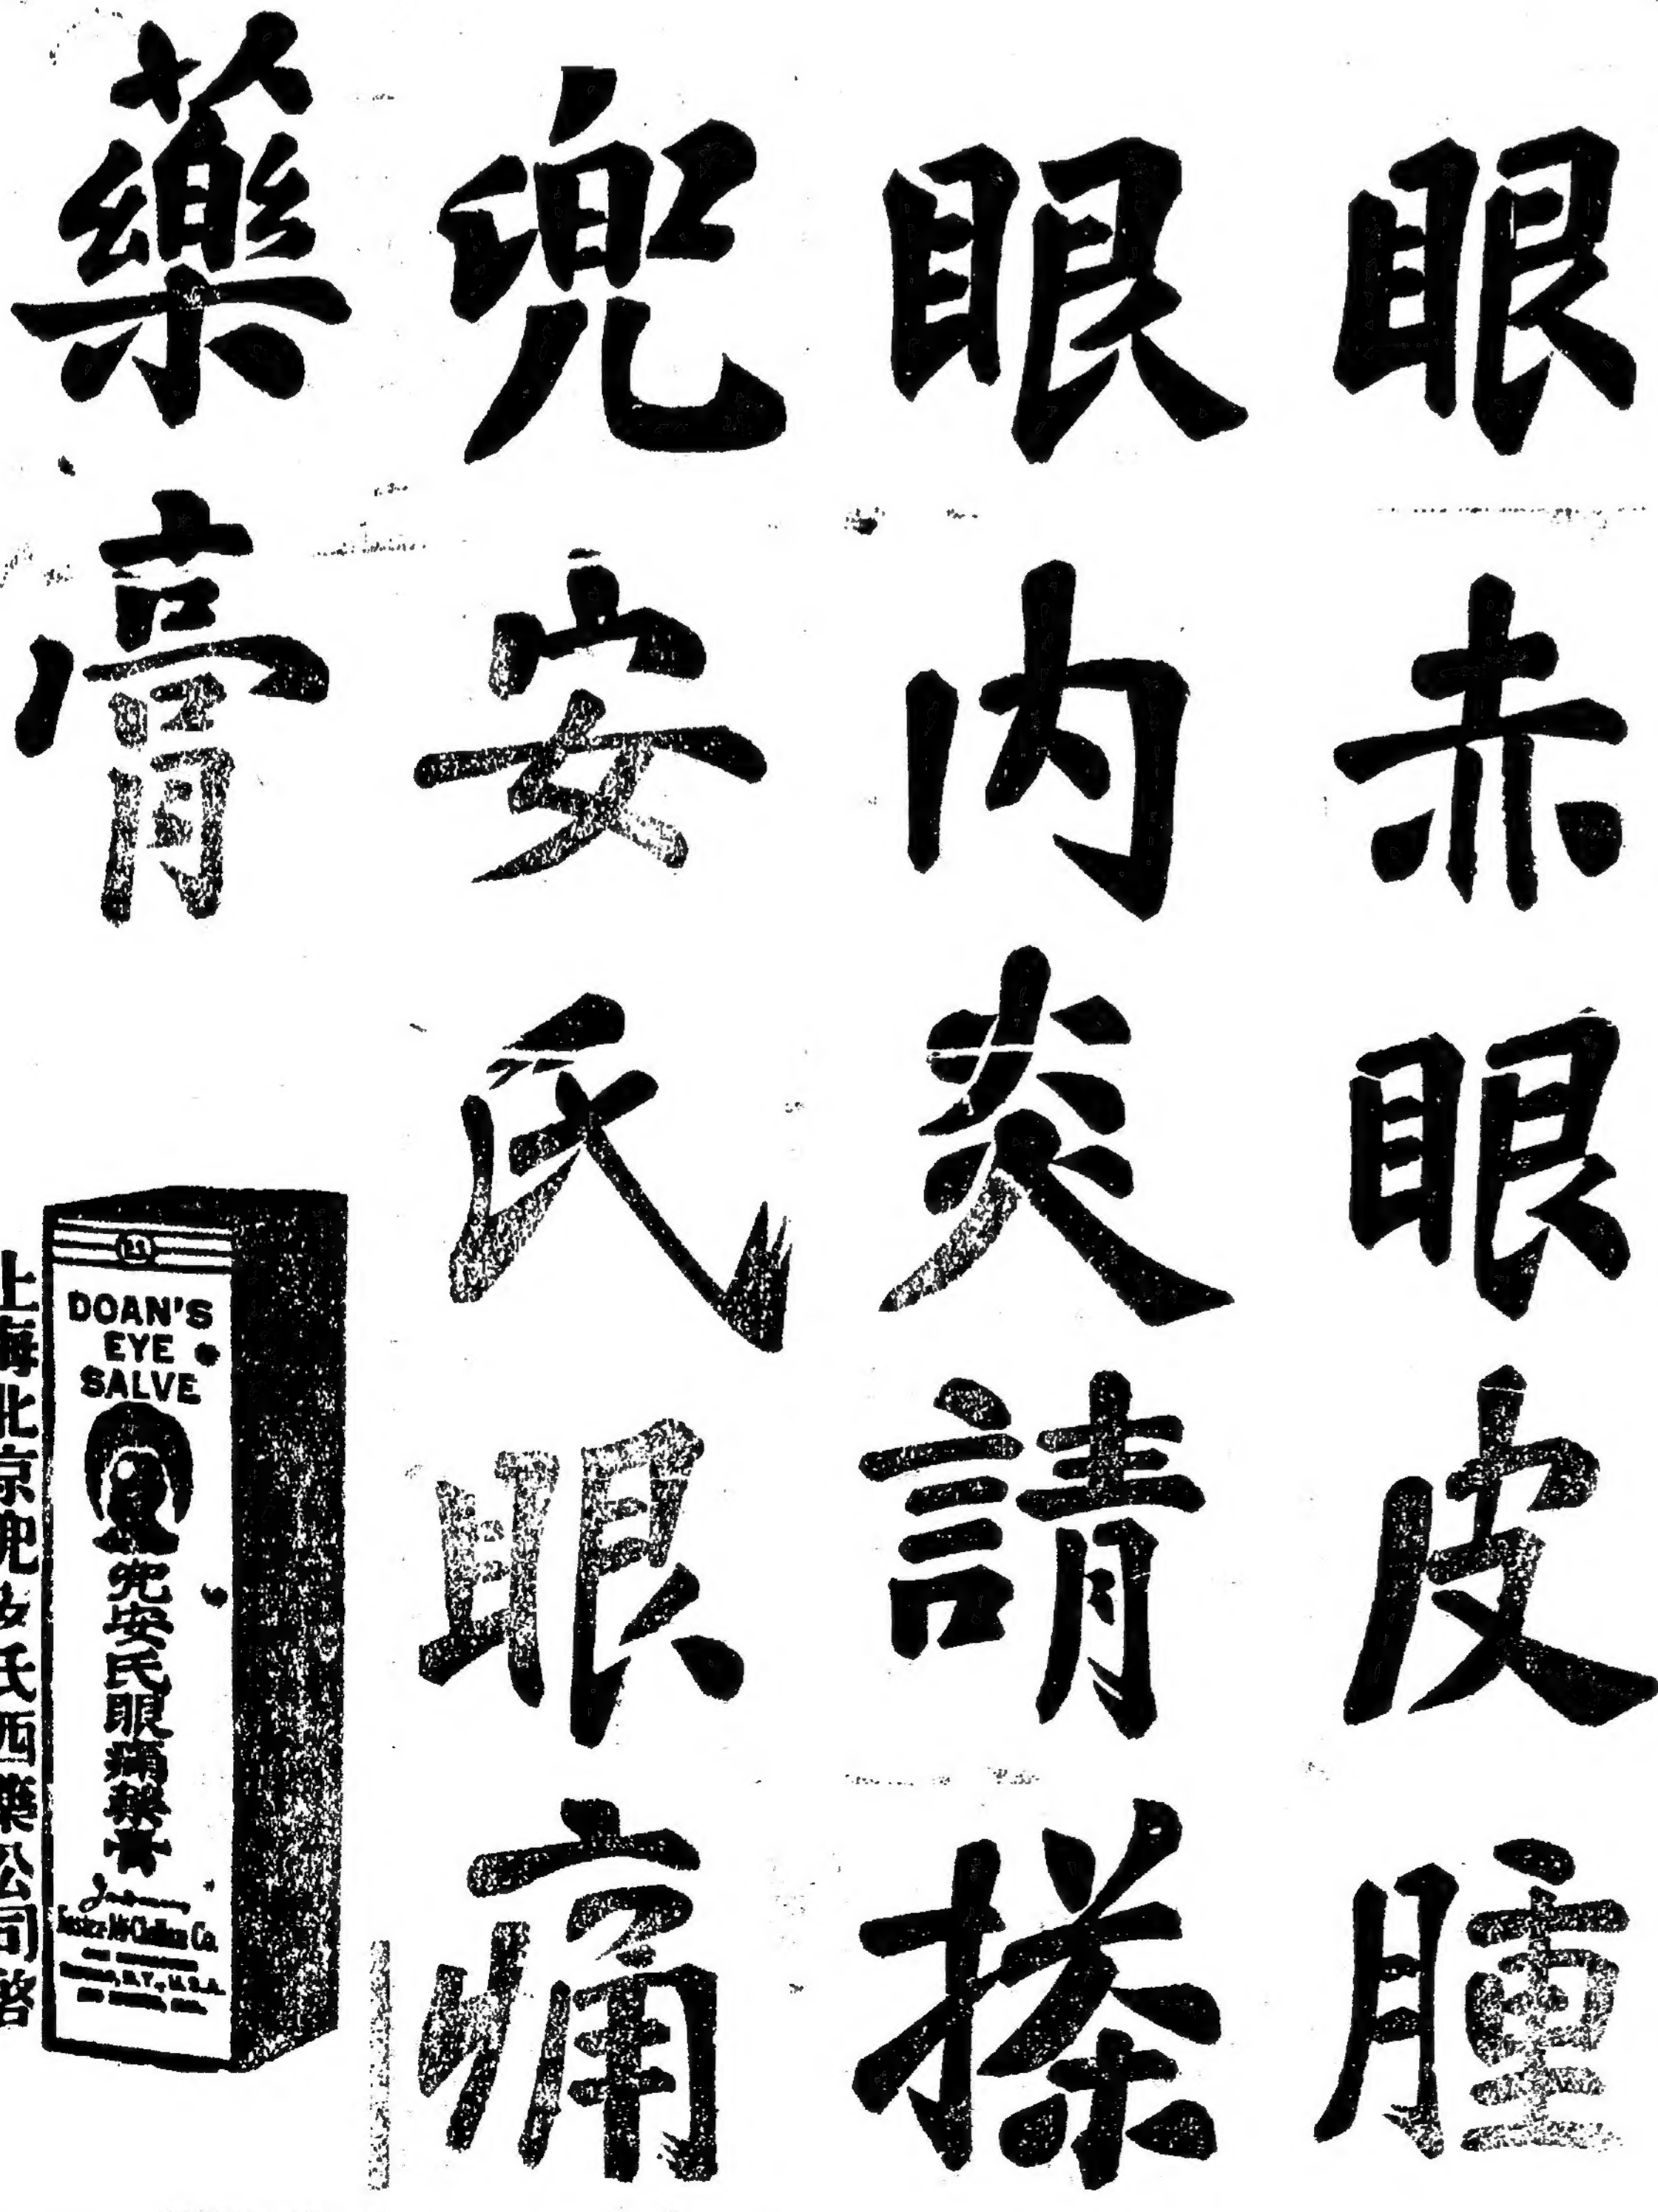 眼赤眼皮腫
眼内炎請搽
兜安氏眼痛
藥膏
DOAN'S
EYE
SALVE
兜安氏眼痛藥膏
Foster-McClellan Co.
上海北京兜安氏西藥公司啓